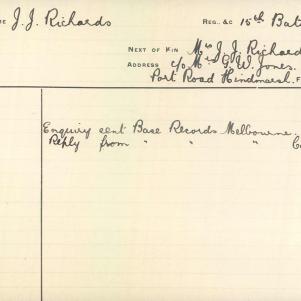 J. J. Richards
REG. &C 15th Bat
NEXT OF KIN Mrs J. J. Richard
ADDRESS c/o Mrs G. W. Jones.
Port Road Hindmarsh.
Enquiry sent Base Records Melbourne
Reply from " " "